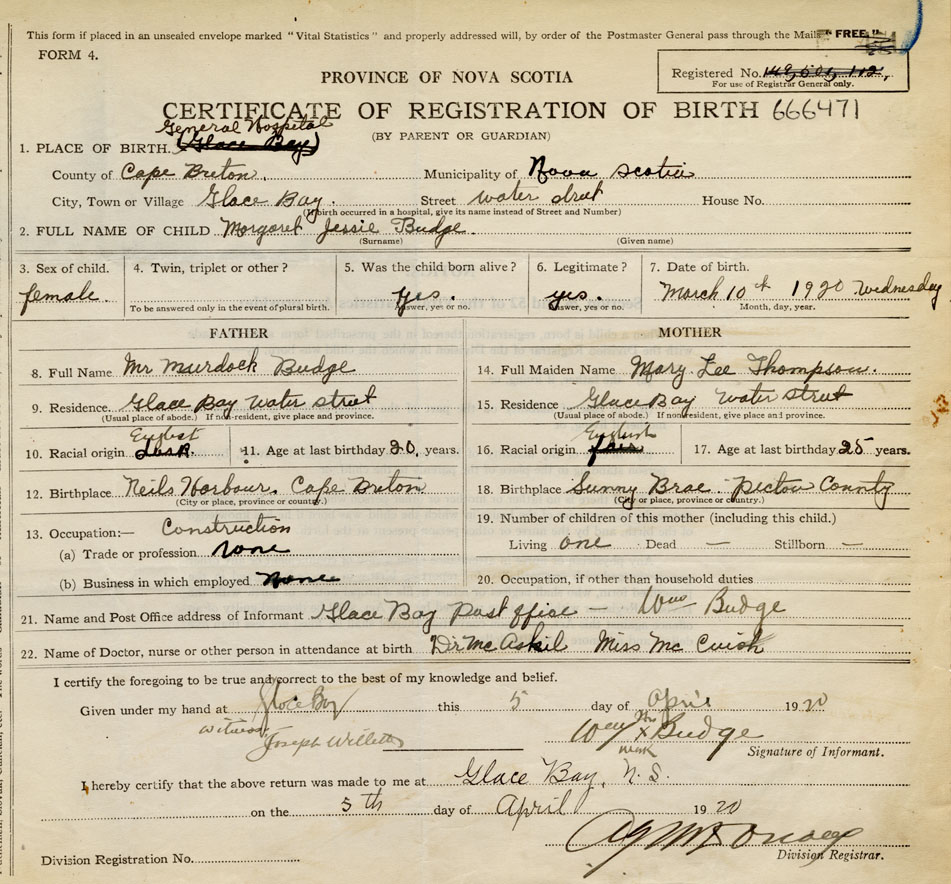 This form if placed in an unsealed envelope marked "Vital Statistics" and properly addressed will, by order of the Postmaster General pass through the Mails "FREE."
FORM 4.
PROVINCE OF NOVA SCOTIA
Registered No.
For use of Registrar General only.
CERTIFICATE OF REGISTRATION OF BIRTH 666471
(BY PARENT OR GUARDIAN)
General Hospital
1. PLACE OF BIRTH. (Glace Bay)
County of Cape Breton. Municipality of Nova Scotia
City, Town or Village Glace Bay. Street water street House No.
(If birth occurred in a hospital, give its name instead of Street and Number)
2. FULL NAME OF CHILD Margaret Jessie Budge.
(Surname) (Given name)
3. Sex of child. 4. Twin, triplet or other? 5. Was the child born alive? 6. Legitimate? 7. Date of birth.
female. yes. yes. March 10th 1920 Wednesday
To be answered only in the event of plural birth. Answer, yes or no. Answer, yes or no. Month, day, year.
FATHER MOTHER
8. Full Name Mr Murdock Budge 14. Full Maiden Name Mary Lee Thompson.
9. Residence. Glace Bay water street 15. Residence Glace Bay water street
(Usual place of abode.) If non-resident, give place and province. (Usual place of abode.) If nonresident, give place and province.
English English
10. Racial origin 11. Age at last birthday 20. years. 16. Racial origin fair 17. Age at last birthday 25 years.
12. Birthplace Neils Harbour. Cape Breton 18. Birthplace Sunny Brae. Pictou County
(City or place, province or country.) (City or place, province or country.)
13. Occupation:— Construction 19. Number of children of this mother (including this child.)
(a) Trade or profession none Living one Dead — Stillborn —
(b) Business in which employed none 20. Occupation, if other than household duties
21. Name and Post Office address of Informant Glace Bay Post office — Wm Budge
22. Name of Doctor, nurse or other person in attendance at birth Dr McAskil Miss Mc Cuish
I certify the foregoing to be true and correct to the best of my knowledge and belief.
Given under my hand at Glace Bay this 5 day of April 1920
witness Joseph Willets Wm his X Budge
mark
Signature of Informant.
I hereby certify that the above return was made to me at Glace Bay, N.S.
on the 5th day of April 1920
Division Registration No. Division Registrar.